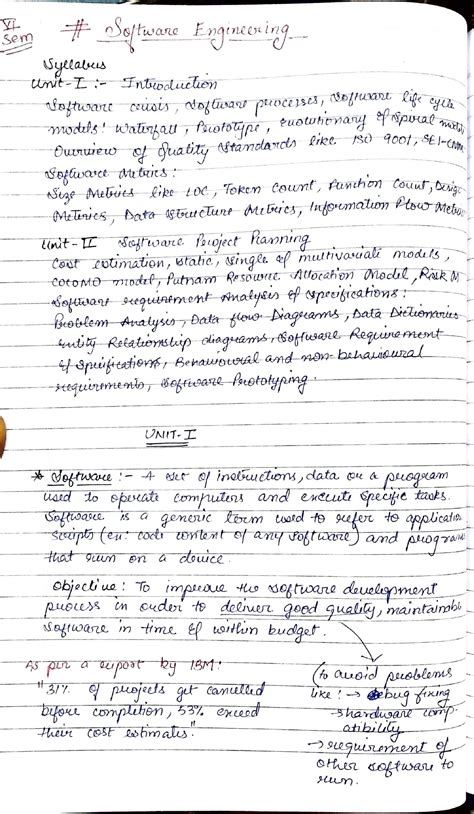 VI
Sem
# Software Engineering
Syllabus
Unit-I :- Introduction
Software crisis, Software processes, Software life cycle
models: Waterfall, Prototype, evolutionary & Spiral models
Overview of Quality Standards like ISO 9001, SEI-CMM
Software Metrics:
Size Metrics like LOC, Token Count, Function Count, Design
Metrics, Data Structure Metrics, Information Flow Metrics
Unit-II Software Project Planning
Cost estimation, static, Single & multivariate models,
COCOMO model, Putnam Resource Allocation Model, Risk M
Software requirement Analysis & Specifications:
Problem Analysis, Data flow Diagrams, Data Dictionaries
Entity Relationship diagrams, Software Requirement
& Specifications, Behavioural and non-behavioural
requirements, Software Prototyping.
UNIT-I
* Software :- A set of instructions, data or a program
used to operate computers and execute specific tasks.
Software is a generic term used to refer to application
scripts (ex: code content of any software) and programs
that run on a device.
Objective: To improve the software development
process in order to deliver good quality, maintainable
software in time & within budget.
As per a report by IBM:
"31% of projects get cancelled
before completion, 53% exceed
their cost estimates."
(to avoid problems
like: → debug fixing
→ hardware comp-
atibility
→ requirement of
other software to
run.